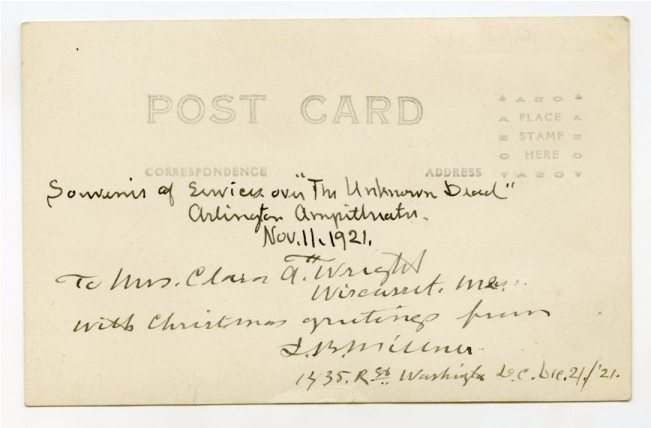 POST CARD
PLACE
STAMP
HERE
CORRESPONDENCE
ADDRESS
Souvenir of Services over "The Unknown Dead"
Arlington Ampitheater.
Nov. 11. 1921.
To Mrs. Clara A. Wright
Wiscasset, Me.
With Christmas greetings from
Washington D.C. Dec. 21/'21.